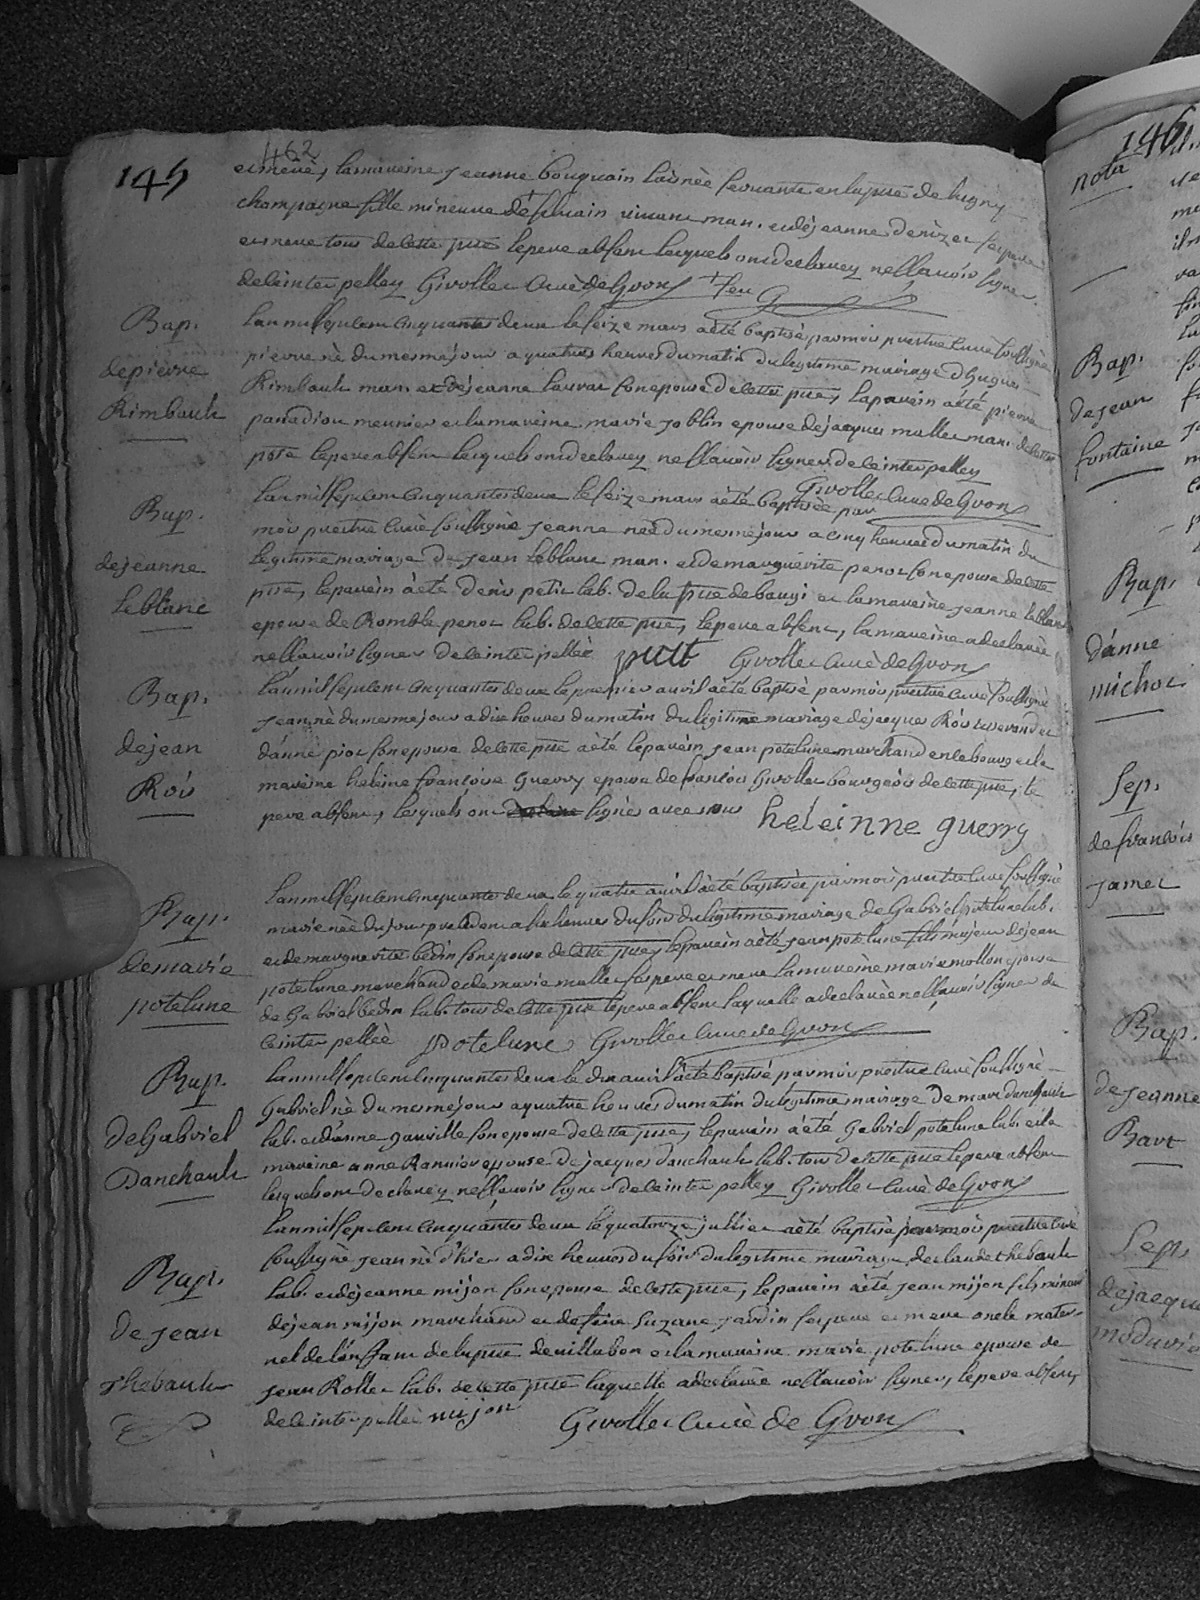 145
462
et mere, la mareine jeanne bouquain laisnée servante en la psse de lugny
champagne fille mineure de silvain vivant man. et de jeanne denizet ses pere
et mere tous de cette psse le pere absent lesquels ont declarez ne sçavoir signer
de ce interpellez Givollet curé de Gron
Bap.
de pierre
Rimbault
Lan mil sept cent cinquante deux le seize mars a été baptisé par moi prestre curé soussigné
pierre né du mesme jour a quatres heures du matin du legitime mariage d'hugues
Rimbault man. et de jeanne son epouse de cette psse, la parein a été pierre
panadiou meunier et la mareine marie joblin epouse de jacques mallet man. de cette
psse le pere absent lesquels ont declarez ne sçavoir signer de ce interpellez
Givollet curé de Gron
Bap.
de jeanne
leblanc
Lan mil sept cent cinquante deux le seize mars a été baptisée par
moi prestre curé soussigné jeanne née du mesme jour a cinq heures du matin du
legitime mariage de jean leblanc man. et de marguerite perot son epouse de cette
psse, le parein a été denis petit lab. de la psse de baugi et la mareine jeanne leblanc
epouse de Romble perot lab. de cette psse, le pere absent, la mareine a declarée
ne sçavoir signer de ce interpellée petit Givollet curé de Gron
Bap.
de jean
Rois
Lan mil sept cent cinquante deux le premier avril a été baptisé par moi prestre curé soussigné
jean né du mesme jour a dix heures du matin du legitime mariage de jacques Rois tisserand et
d'anne piot son epouse de cette psse a été le parein jean potelune marchand en ce bourg et la
mareine heleine françoise Guerry epouse de françois Givollet bourgeois de cette psse, le
pere absent, lesquels ont signés avec nous heleinne guerry
Bap.
de marie
potelune
Lan mil sept cent cinquante deux le quatre avril a été baptisée par moi prestre curé soussigné
marie née du jour precedent a six heures du soir du legitime mariage de Gabriel potelune lab.
et de marguerite bedin son epouse de cette psse, le parein a été jean potelune fils majeur de jean
potelune marchand et de marie mallet ses pere et mere la mareine marie mollon epouse
de Gabriel bedin lab. tous de cette psse le pere absent laquelle a declarée ne sçavoir signer de
ce interpellée Potelune Givollet curé de Gron
Bap.
de Gabriel
Danchault
Lan mil sept cent cinquante deux le dix avril a été baptisé par moi prestre curé soussigné
Gabriel né du mesme jour a quatre heures du matin du legitime mariage de marc danchault
lab. et d'anne gauville son epouse de cette psse, le parein a été Gabriel potelune lab. et la
mareine anne Rannier epouse de jacques danchault lab. tous de cette psse le pere absent
lesquels ont declarez ne sçavoir signer de ce interpellez Givollet curé de Gron
Bap.
de jean
thebault
Lan mil sept cent cinquante deux le quatorze juillet a été baptisé par moi prestre curé
soussigné jean né d'hier a dix heures du soir du legitime mariage de claude thebault
lab. et de jeanne mijon son epouse de cette psse, le parein a été jean mijon fils mineur
de jean mijon marchand et de feue suzane jardin ses pere et mere oncle mater-
nel de l'enfant de la psse de villabon et la mareine marie potelune epouse de
jean Rollet lab. de cette psse laquelle a declarée ne sçavoir signer, le pere absent,
de ce interpellée mijon Givollet curé de Gron
146
nota
Bap.
de jean
fontaine
Bap.
d'anne
michot
Sep.
de françois
jamet
Bap.
de jeanne
Bart
Sep.
de jacque